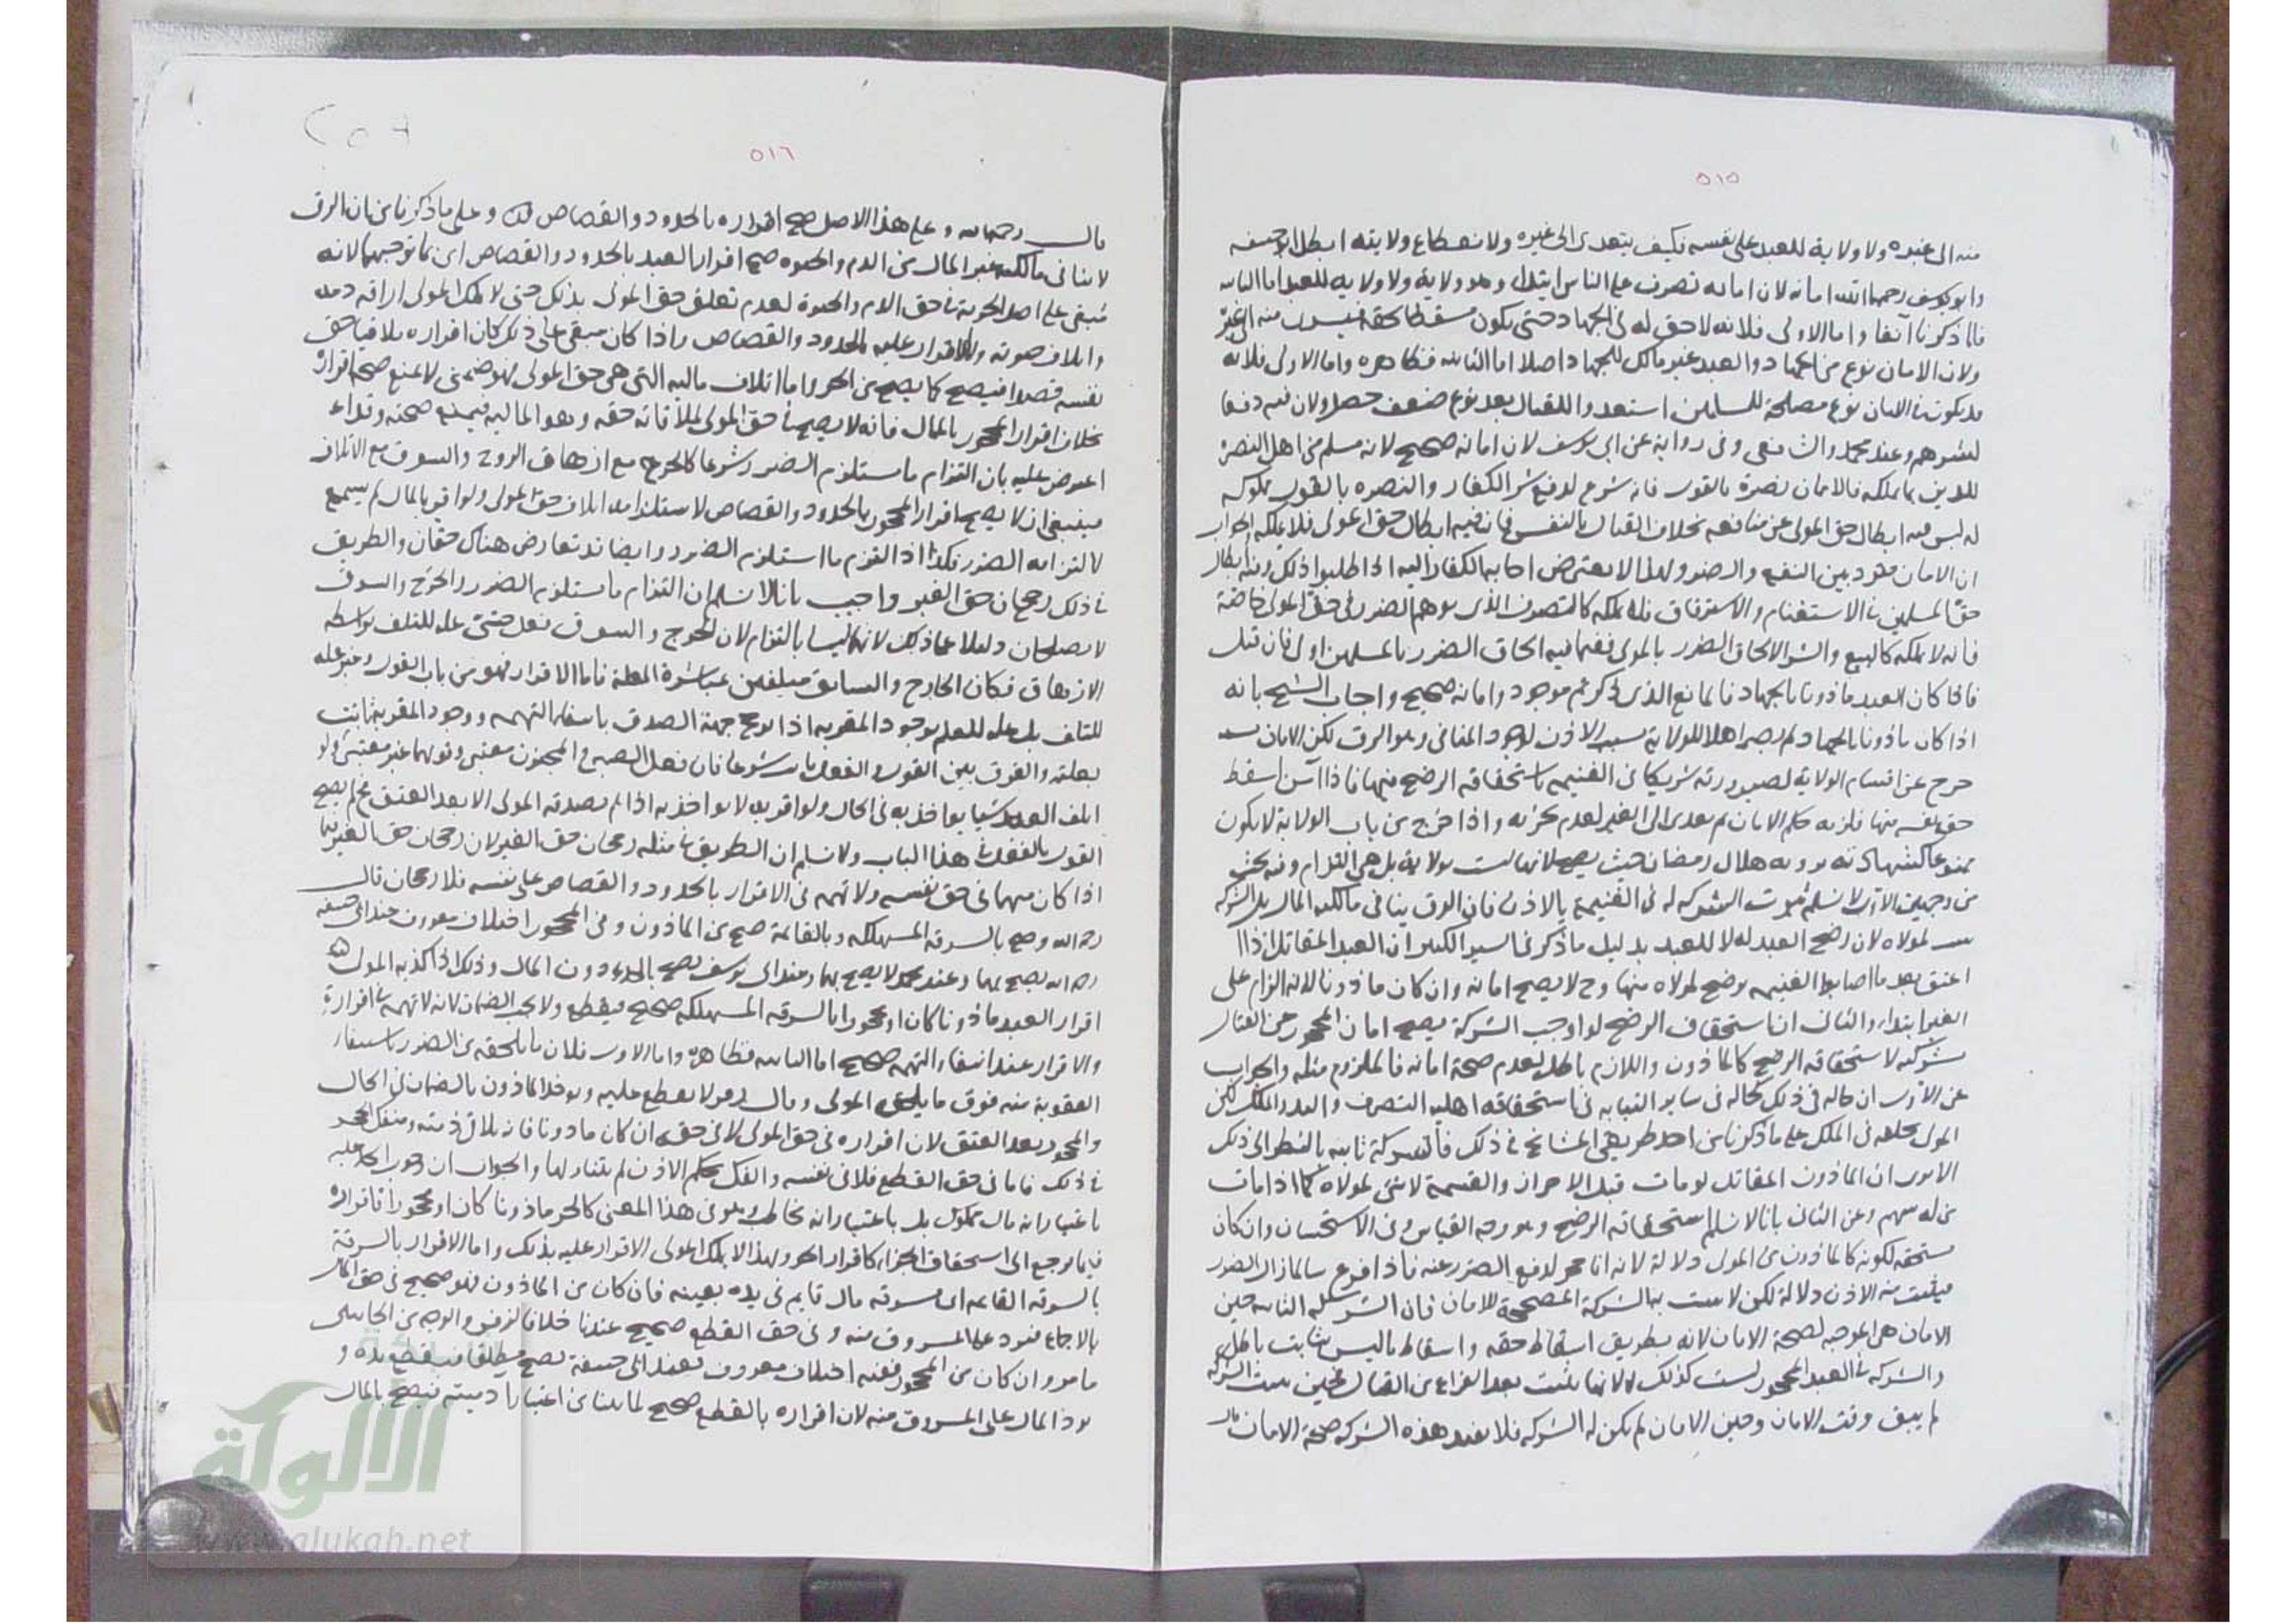 ٥١٥
منه الى غيره ولا ولاية للعبد على نفسه فكيف يتعدى الى غيره ولانقطاع ولايته ابطل ابو حنيفه
وابو يوسف رحمهما الله امانه لان امانه تصرف على الناس ابتداء وهو ولاية ولا ولاية للعبد اما الثانيه
فلما ذكرنا آنفا واما الاولى فلانه لا حق له فى الجهاد حتى يكون مسقطا حقه منه الى غيره
ولان الامان نوع من الجهاد والعبد غير مالك للجهاد اصلا اما الثانيه فظاهره واما الاولى فلانه
قد يكون فى الامان نوع مصلحة للمسلمين استعدوا للقتال بعد نوع ضعف حصل ولان فيه دفعا
لشرهم وعند محمد والشافعى وفى رواية عن ابى يوسف لان امانه صحيح لانه مسلم من اهل النصرة
للدين بما يملكه فالامان نصرة بالقول فانه شرع لدفع شر الكفار والنصره بالقول مملوكه
له ليس فيه ابطال حق المولى عن منافعه بخلاف القتال بالنفس فان فيه ابطال حق المولى فلا يملكه الجواب
ان الامان متردد بين النفع والضرر ولهذا لا يفترض اجابه الكفار اليه اذا طلبوا ذلك وفيه ابطال
حق المسلمين فى الاستغنام والاسترقاق فلا يملكه كالتصرف الذى يوهم الضرر فى حق المولى خاصة
فانه لا يملكه كالبيع والشرا لالحاق الضرر بالمولى ففيما فيه الحاق الضرر بالمسلمين اولى فان قيل
فاذا كان العبد ماذونا بالجهاد فالمانع الذى ذكرتم موجود وامانه صحيح واجاب الشيخ بانه
اذا كان ماذونا بالجهاد لم يصر اهلا للولاية بسبب الاذن لوجود المنافى وهو الرق لكن الامان
خرج عن اقسام الولاية لصيرورته شريكا فى الغنيمه باستحقاقه الرضخ منها فاذا آمن اسقط
حق نفسه منها فلزمه حكم الامان ثم تعدى الى الغير لعدم تجزئه واذا خرج من باب الولاية لا يكون
ممنوعا كشهادته برويه هلال رمضان حيث يصح لانها ليست بولاية بل هى التزام وفيه بحث
من وجهين الاول لا نسلم ثبوت الشركه له فى الغنيمة بالاذن فان الرق ينافى مالكيه المال بل الشركه
لمولاه لان رضخ العبد له لا للعبد بدليل ما ذكر فى السير الكبير ان العبد المقاتل اذا
اعتق بعد ما اصابوا الغنيمه يرضخ لمولاه منها وح لا يصح امانه وان كان ماذونا لانه الزام على
الغير ابتداء والثانى ان استحقاق الرضخ لو اوجب الشركة يصح امان المحجور عن القتال
لاستحقاقه الرضخ كالماذون واللازم باطل لعدم صحة امانه فالملزوم مثله والجواب
عن الاول ان حاله فى ذلك كحاله فى ساير النيابه فى استحقاقه اهليه التصرف واليد والملك لكن
المولى يخلفه فى الملك على ما ذكرنا من احد طريقى المشايخ فى ذلك فالشركة ثابته بالنظر الى ذلك
الا يرى ان الماذون المقاتل لو مات قبل الاحراز والقسمة لا شئ لمولاه كما اذا مات
من له سهم وعن الثانى بانا لا نسلم استحقاقه الرضخ وهو وجه القياس وفى الاستحسان وان كان
مستحقه لكونه كالماذون من المولى دلالة لانه انما حجر لدفع الضرر عنه فاذا فرغ سالما زال الضرر
فيثبت منه الاذن دلالة لكن لا يثبت به الشركة المصححة للامان فان الشركه الثابته حين
الامان هى الموجبه لصحة الامان لانه بطريق اسقاط حقه واسقاط ما ليس بثابت باطل
والشركه فى العبد المحجور ليست كذلك لانها تثبت بعد الفراغ من القتال فحين تثبت الشركه
لم يبق وقت الامان وحين الامان لم يكن له الشركه فلا يفيد هذه الشركه صحة الامان
٥١٦
قال رحمه الله وعلى هذا الاصل صح اقراره بالحدود والقصاص وعلى ما ذكرنا من ان الرق
لا ينافى مالكيه غير المال من الدم والحيوه صح اقرار العبد بالحدود والقصاص اى بما يوجبهما لانه
مبقى على اصل الحرية فى حق الدم والحيوة لعدم تعلق حق المولى بذلك حتى لا يملك المولى اراقة دمه
واتلاف حيوته والاقرار عليه بالحدود والقصاص واذا كان مبقى على ذلك كان اقراره ملاقيا حق
نفسه قصدا فيصح كما يصح من الحر واما اتلاف ماليه التى هى حق المولى فهو ضمنى لا يمنع صحة اقراره
بخلاف اقرار المحجور بالمال فانه لا يصح فى حق المولى لملاقاته حقه وهو الماليه فيمنع صحته
اعترض عليه بان التزام ما يستلزم الضرر مشروعا كالجرح مع ازهاق الروح والسوق مع الاتلاف
فينبغى ان لا يصح اقرار المحجور بالحدود والقصاص لاستلزامه اتلاف حق المولى ولو اقر بالمال لم يسمع
لالتزامه الضرر فكذا اذا التزم ما استلزم الضرر وايضا قد تعارض هناك حقان والطريق
فى ذلك رجحان حق الغير واجيب بانا لا نسلم ان التزام ما يستلزم الضرر والجرح والسوق
لا يصلحان دليلا على ذلك لانهما ليسا بالتزام لان الجرح والسوق فعل حسى عله للتلف بواسطه
الازهاق فكان الجارح والسايق متلفين بمباشرة العلة فاما الاقرار فهو من باب القول وغير عله
للتلف بل عله للعلم بوجود المقر به اذا ترجح جهة الصدق بانتفاء التهمه ووجود المقر به ثابت
بعلته والفرق بين القول والفعل ثابت شرعا فان فعل الصبى والمجنون معتبر وقولهما غير معتبر ولو
اتلف العبد شيا يواخذ به فى الحال ولو اقر به لا يواخذ به اذا لم يصدقه المولى الا بعد العتق فلم يصح
القول بالفعل فى هذا الباب ولا نسلم ان الطريق فى مثله رجحان حق الغير لان رجحان حق الغير
اذا كان متهما فى حق نفسه ولا تهمه فى الاقرار بالحدود والقصاص على نفسه فلا رجحان قال
رحمه الله وصح بالسرقة المستهلكه وبالقائمة صح من الماذون وفى المحجور اختلاف معروف عند ابى حنيفه
رحمه الله يصح بهما وعند محمد لا يصح بهما وعند ابى يوسف يصح بالحد دون المال وذلك اذا كذبه المولى
اقرار العبد ماذونا كان او محجورا بالسرقه المستهلكه صحيح فيقطع ولا يجب الضمان لانه لا تهمه فى اقراره
والاقرار عند انتفاء التهمه صحيح اما الثانيه فظاهرة واما الاولى فلان ما يلحقه من الضرر باستيفاء
العقوبة منه فوق ما يلحق المولى وقال زفر لا يقطع عليه ويواخذ الماذون بالضمان فى الحال
والمحجور بعد العتق لان اقراره فى حق المولى لا فى حقه ان كان ماذونا فانه يلاقى ذمته ومنفك الحجر
فى ذلك فاما فى حق القطع فلاقى نفسه والفك بحكم الاذن لم يتناولها والجواب ان وجوب الحد عليه
باعتبار انه مال مملوك بل باعتبار انه مخاطب وهو فى هذا المعنى كالحر ماذونا كان او محجورا فاقراره
فيما يرجع الى استحقاق الجزاء كاقرار الحر ولهذا لا يملك المولى الاقرار عليه بذلك واما الاقرار بالسرقة
بالسرقه القائمه اى سرقه مال قايم فى يده بعينه فان كان من الماذون فهو صحيح فى حق المال
بالاجماع فيرد على المسروق منه وفى حق القطع صحيح عندنا خلافا لزفر والوجه من الجانبين
ما مر وان كان من المحجور ففيه اختلاف معروف فعند ابى حنيفة يصح مطلقا فيقطع يده و
يرد المال على المسروق منه لان اقراره بالقطع صحيح لما بينا من اعتبار ادميته فيصح بالمال
الألوكة
www.alukah.net